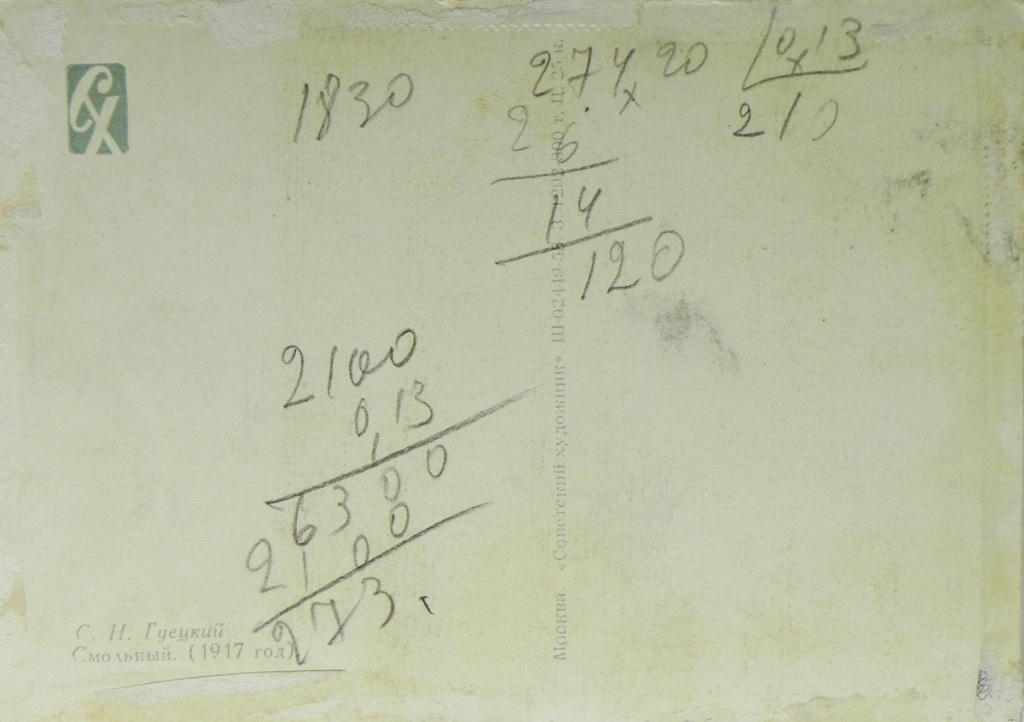 СХ
1830
274 20 | 0,13
26 210
14
120
2100
0,13
6300
2100
273
С. Н. Гуецкий
Смольный. (1917 год)
Москва «Советский художник» Ш-02449-58